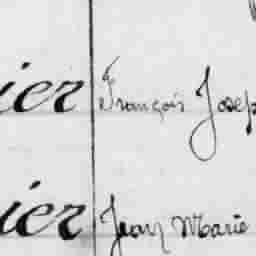 ier François Josep
ier Jean Marie